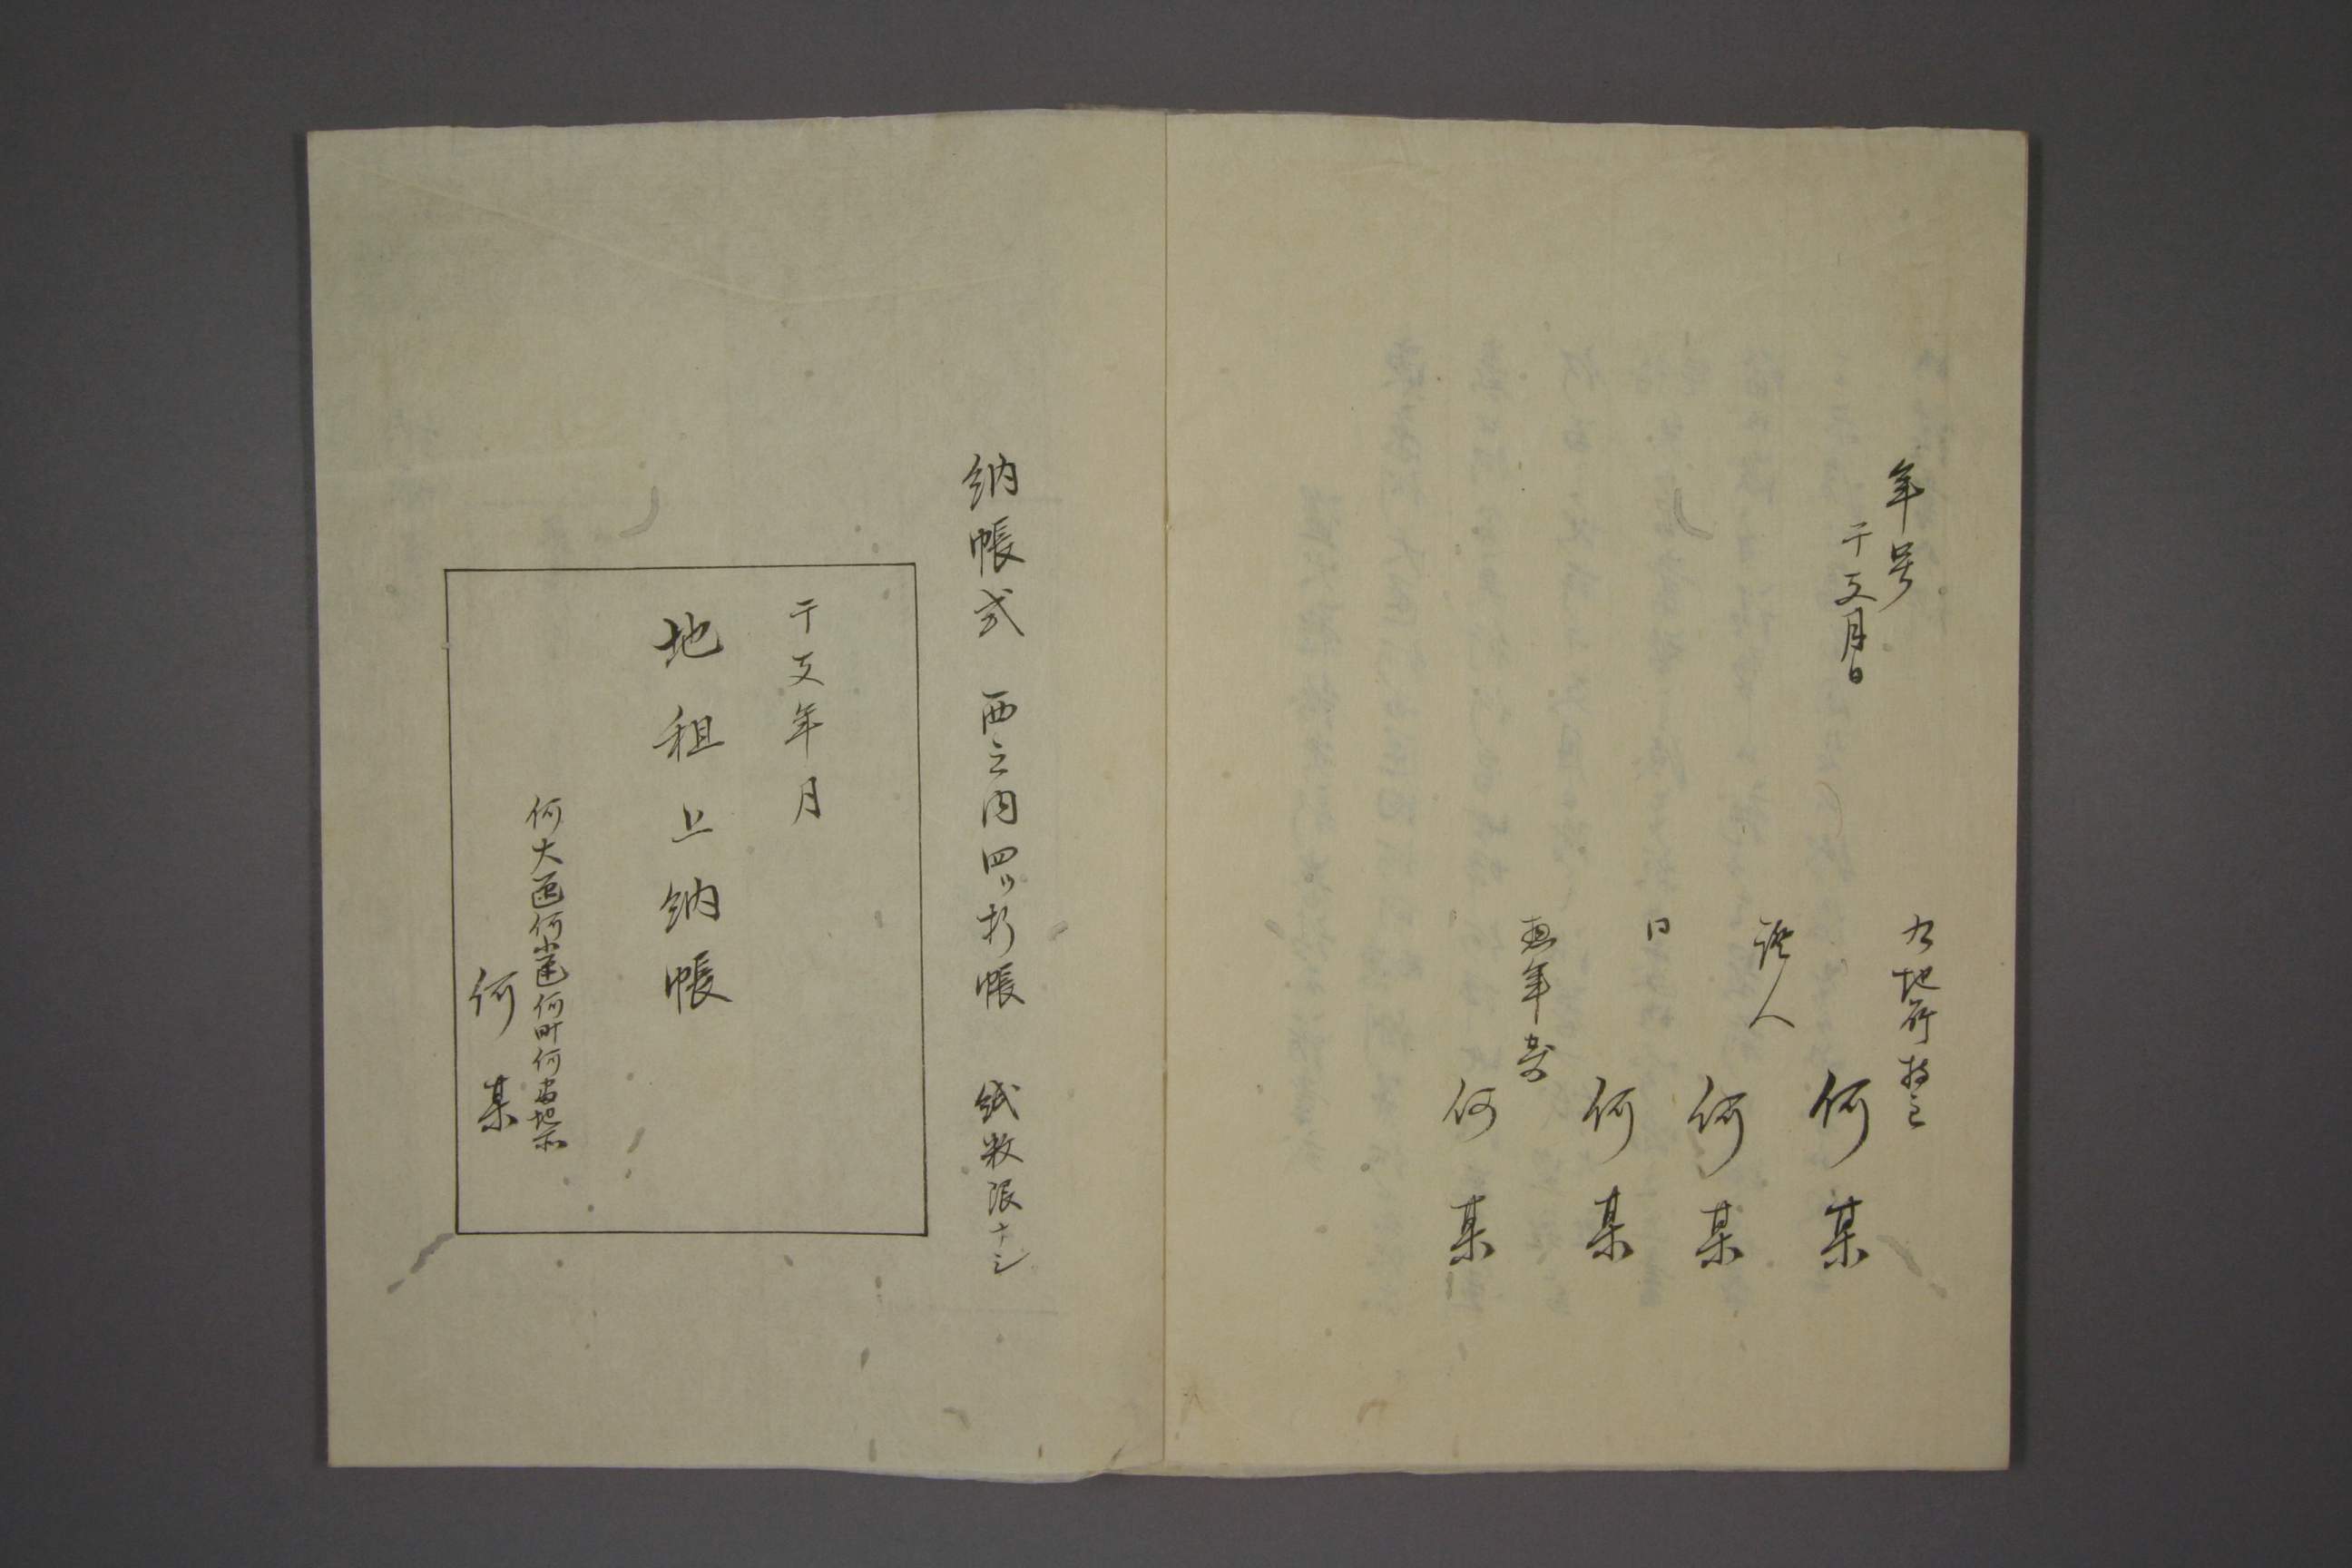 年号
干支月日
右地所持主
何某
證人
何某
同
何某
惣年寄
何某
納帳式 西之内四ツ折帳 紙数限ナシ
干支年月
地租上納帳
何大區何小區何町何番地所
何某